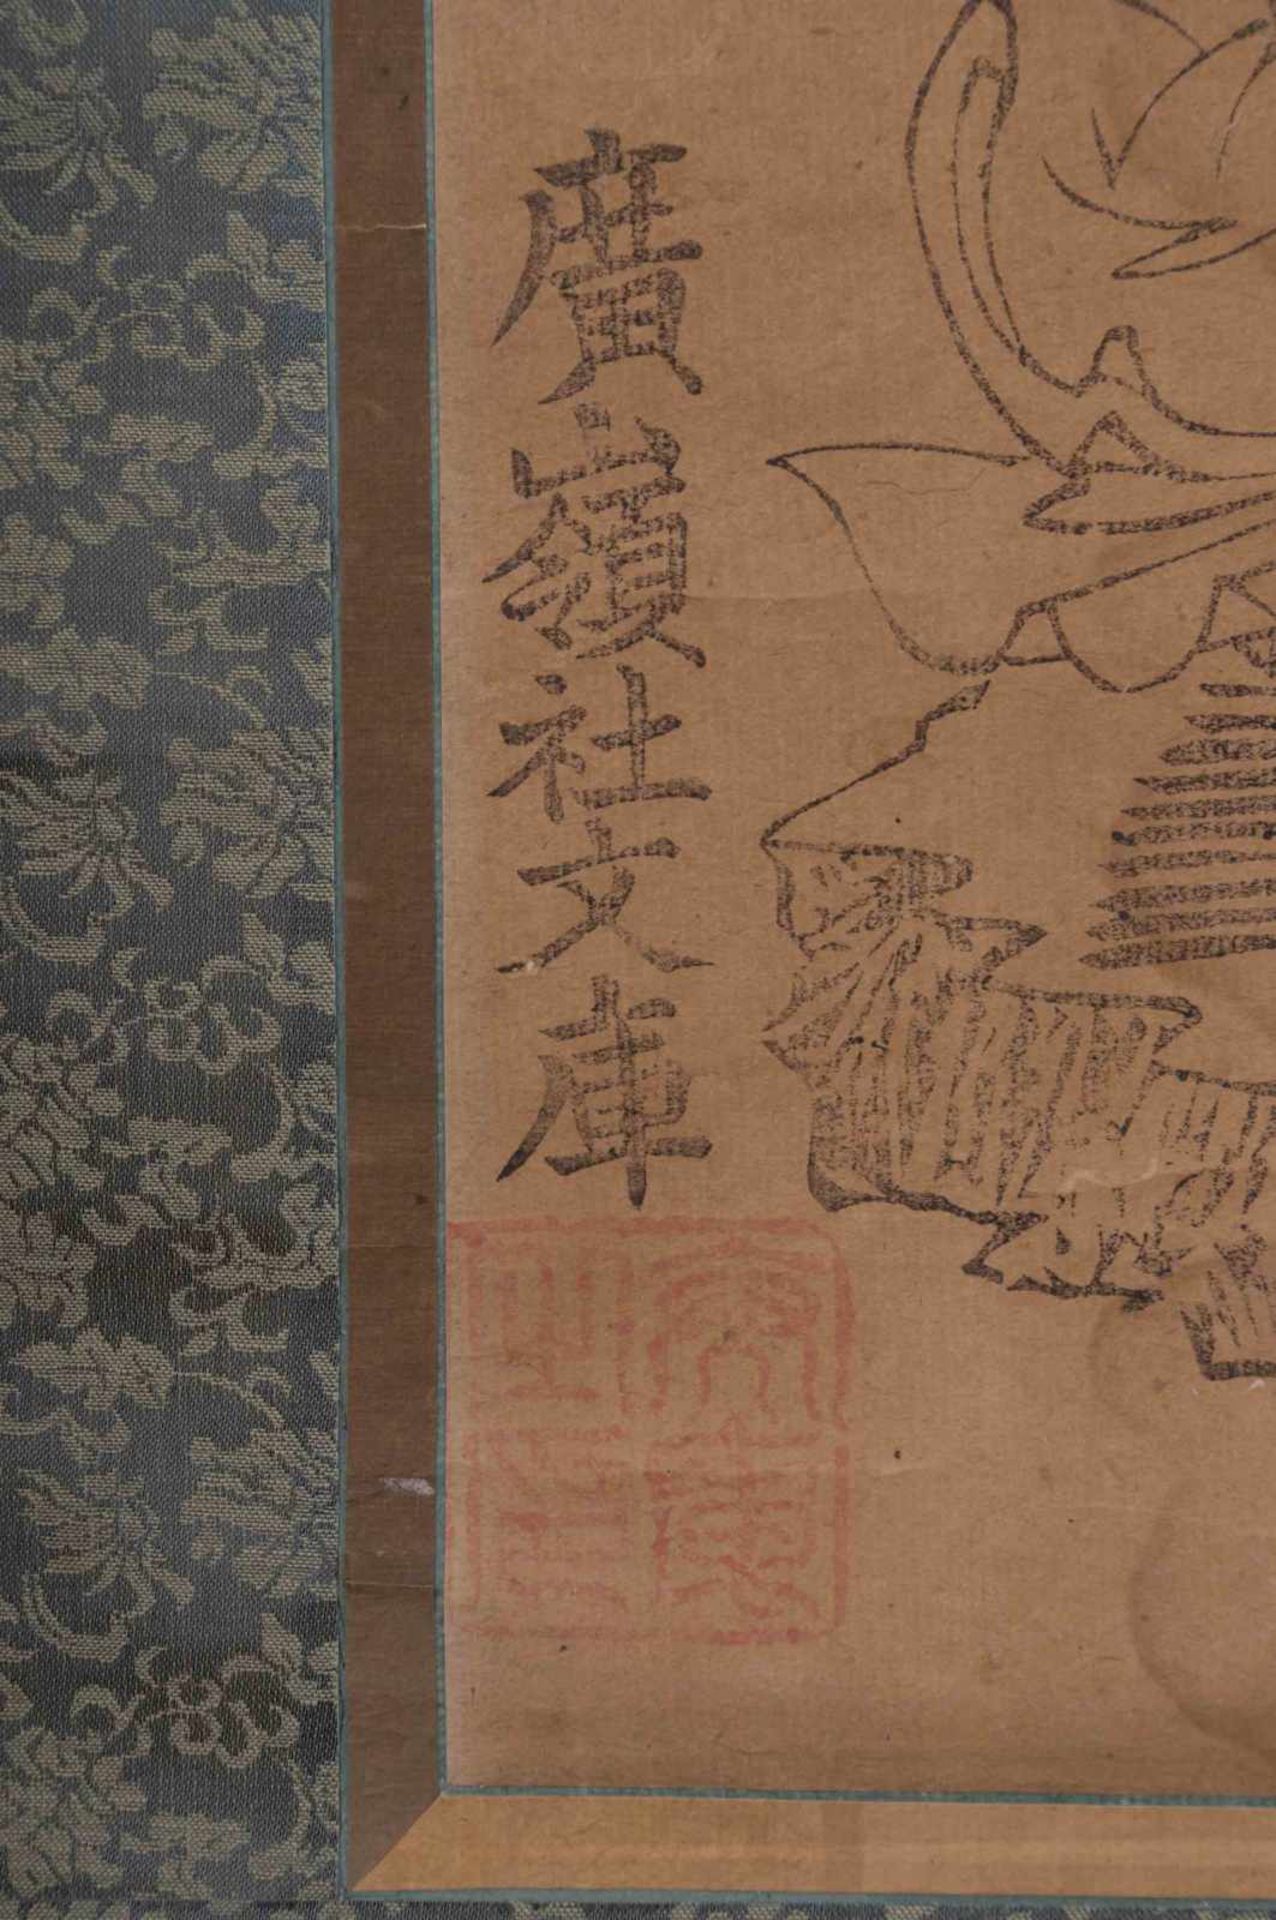 廣嶺社文庫